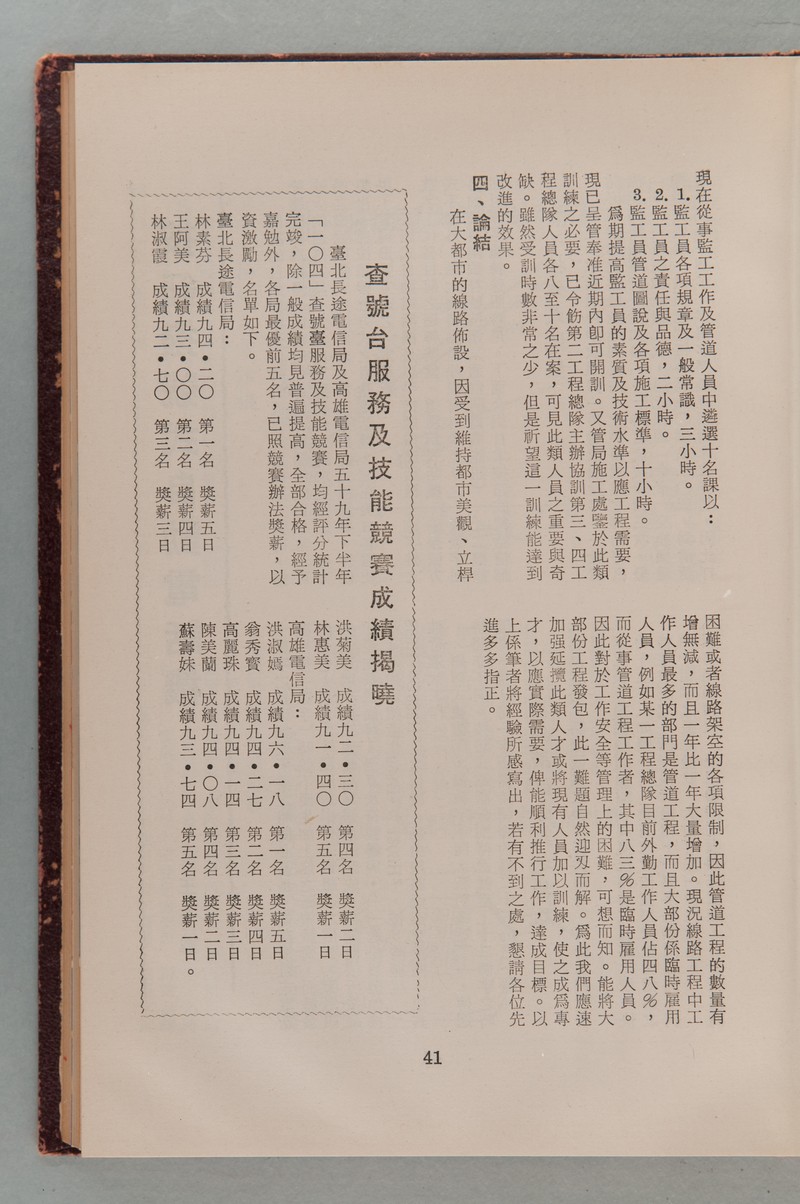 現在從事監工工作及管道人員中遴選十名課以：
1.監工員各項規章及一般常識，三小時。
2.監工員之責任與品德，二小時。
3.監工員管道圖說及各項施工標準，十小時。
爲期提高監工員的素質及技術水準以應工程需要，
現已呈管奉准近期內卽可開訓。又管局施工處鑒於此類
訓練之必要，已令飭第二工程總隊主辦協訓第三、四工
程總隊人員各八至十名在案，可見此類人員之重要與奇
缺。雖然受訓時數非常之少，但是祈望這一訓練能達到
改進的效果。
四、論結
在大都市的線路佈設，因受到維持都市美觀、立桿
困難或者線路架空的各項限制，因此管道工程的數量有
增無減，而且一年比一年大量增加。現況線路工程中工
作人員最多的部門是管道工程，而且大部份係臨時雇用
人員，例如某一工程總隊目前外勤工作人員佔四八%，
而從事管道工程工作者，其中八三%是臨時雇用人員。
因此對於工作安全等管理上的困難，可想而知。能將大
部份工程發包，此一難題自然迎刄而解。爲此我們應速
加强延攬此類人才或將現有人員加以訓練，使之成爲專
才，以應實際需要，俾能順利推行工作，達成目標。以
上係筆者將經驗所感寫出，若有不到之處，懇請各位先
進多多指正。
查號台服務及技能競賽成績揭曉
臺北長途電信局及高雄電信局五十九年下半年
「一〇四」查號臺服務及技能競賽，均經評分統計
完竣，除一般成績均見普遍提高，全部合格，經予
嘉勉外，各局最優前五名，已照競賽辦法獎薪，以
資激勵，名單如下。
臺北長途電信局：
林素芬　成績九四•二〇　第一名　獎薪五日
王阿美　成績九三•〇〇　第二名　獎薪四日
林淑霞　成績九二•七〇　第三名　獎薪三日
洪菊美　成績九二•三〇　第四名　獎薪二日
林惠美　成績九一•四〇　第五名　獎薪一日
高雄電信局：
洪淑嫣　成績九六•一八　第一名　獎薪五日
翁秀賓　成績九四•二七　第二名　獎薪四日
高麗珠　成績九四•一四　第三名　獎薪三日
陳美蘭　成績九四•〇八　第四名　獎薪二日
蘇壽妹　成績九三•七四　第五名　獎薪一日。
41